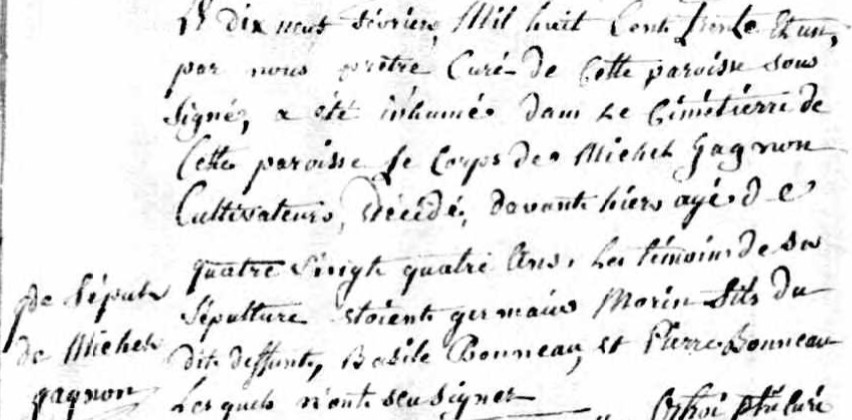 Le dix neuf Février, Mil huit Cent Trente Et un,
par nous prêtre Curé de Cette paroisse sous
signé, a été inhumé dans Le Cimétierre de
Cette paroisse Le Corps de Michel Gagnon
Cultivateur, décédé, devant hier agé de
quatre vingt quatre Ans. Les témoins de sa
sépulture étoient germain Morin fils du
dit deffunt, Basile Bonneau, et Pierre Bonneau
Lesquels n'ont scu signer
ptre Curé
de Michel
gagnon